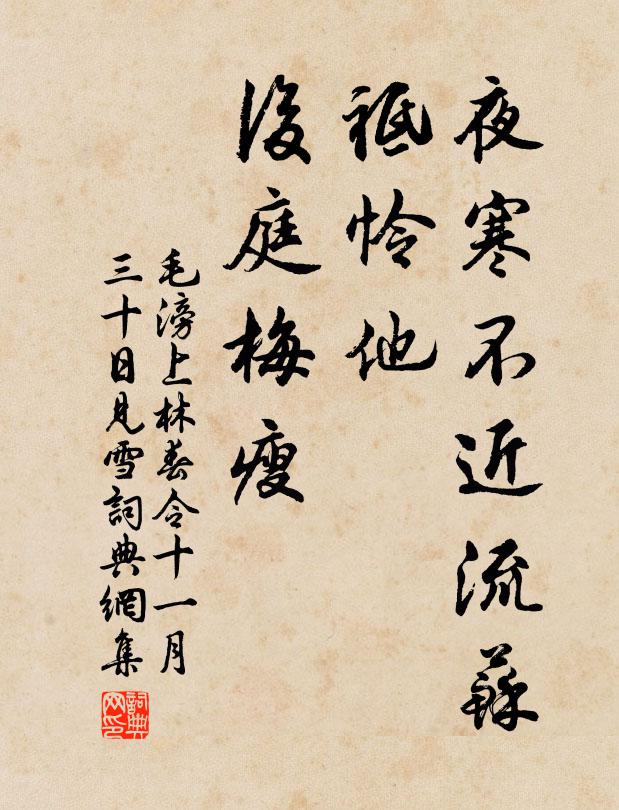 夜寒不近流蘇
祗憐他
後庭梅瘦
毛滂上林春令十一月
三十日見雪詞典網集
詞典
网印